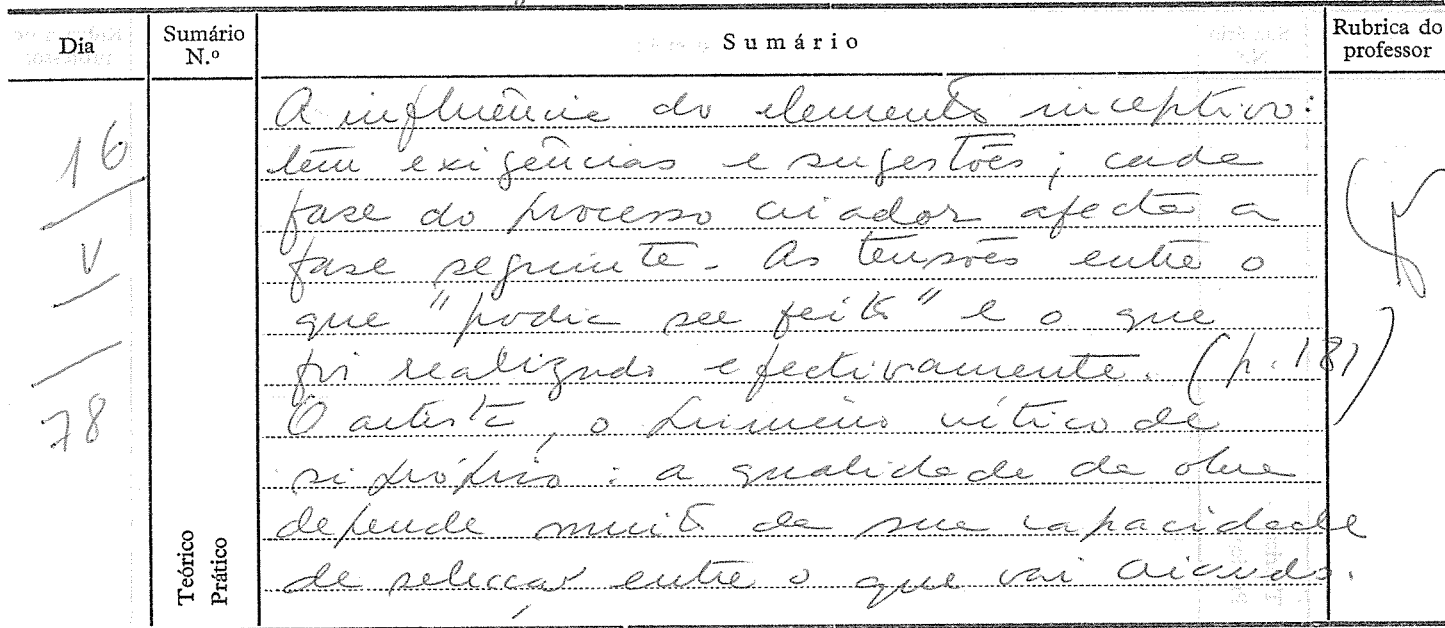 Dia
Sumário
N.º
Sumário
Rubrica do
professor
16
V
78
A influência do elemento inceptivo:
tem exigências e sugestões; cada
fase do processo criador afecta a
fase seguinte. As tensões entre o
que "podia ser feito" e o que
foi realizado efectivamente. (p. 181)
O artista, o primeiro crítico de
si próprio: a qualidade da obra
depende muito da sua capacidade
de seleccar entre o que vai criando.
Teórico
Prático